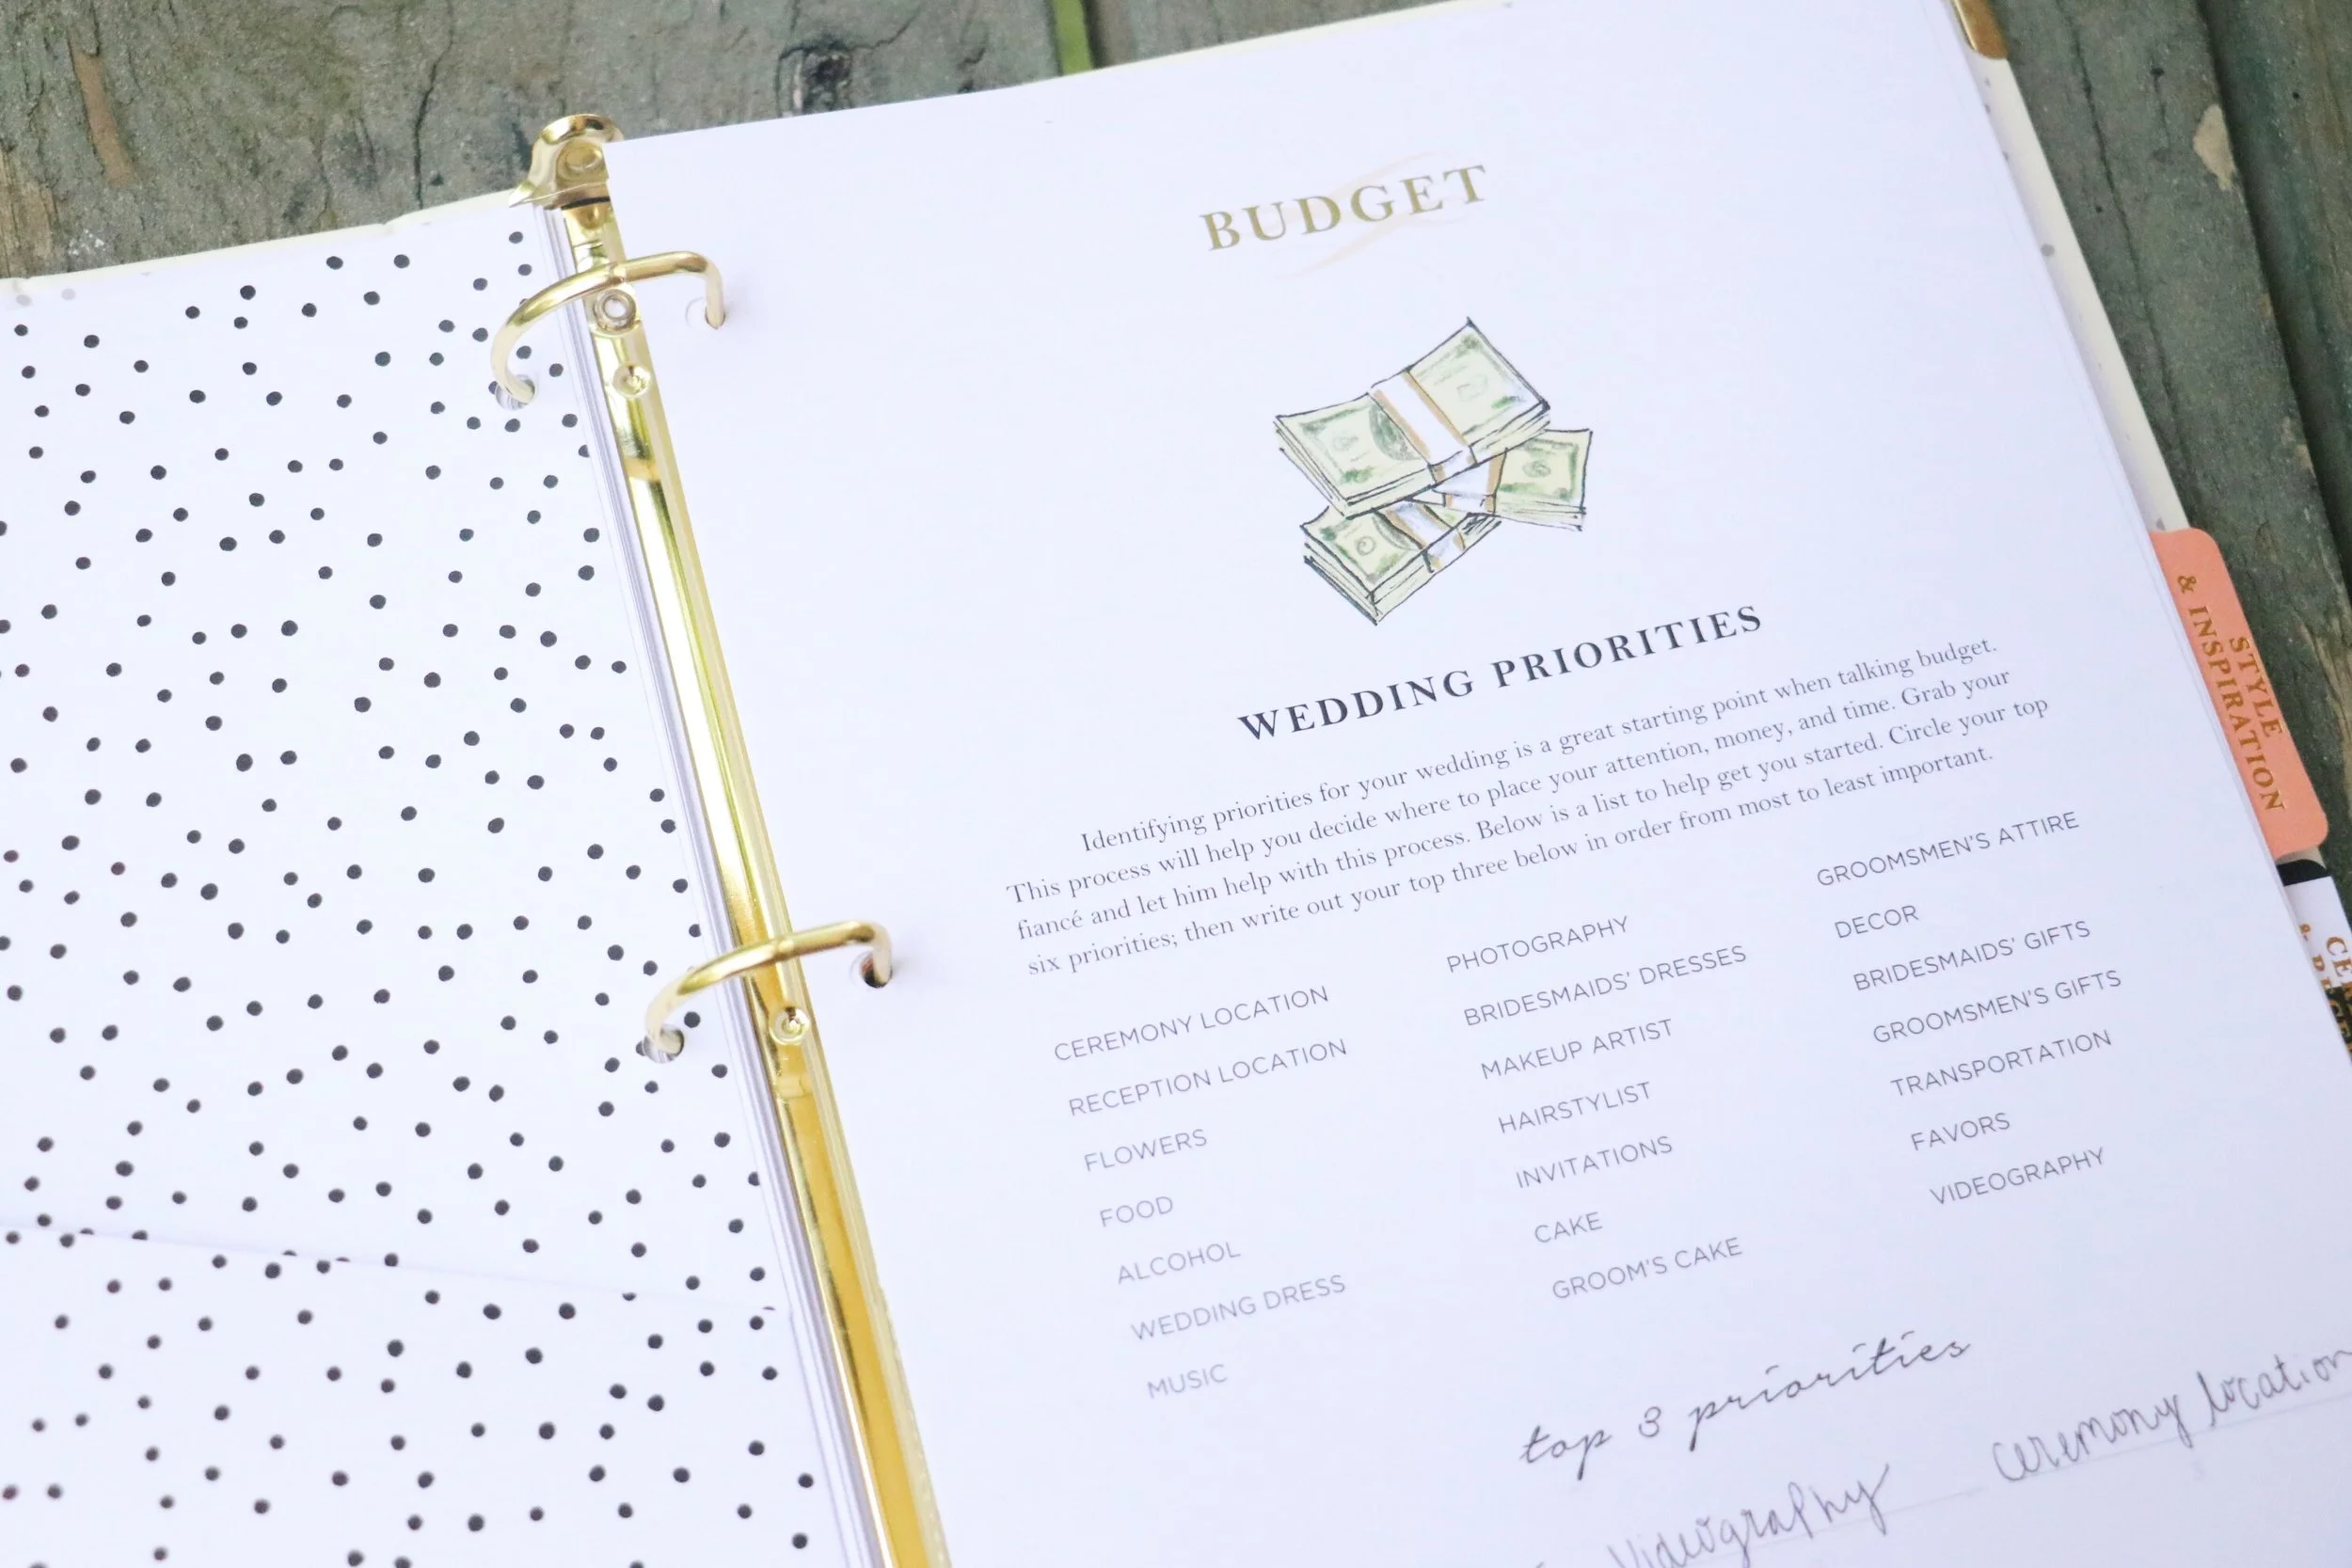 BUDGET
WEDDING PRIORITIES
Identifying priorities for your wedding is a great starting point when talking budget.
This process will help you decide where to place your attention, money, and time. Grab your
fiancé and let him help with this process. Below is a list to help get you started. Circle your top
six priorities; then write out your top three below in order from most to least important.
CEREMONY LOCATION
RECEPTION LOCATION
FLOWERS
FOOD
ALCOHOL
WEDDING DRESS
MUSIC
PHOTOGRAPHY
BRIDESMAIDS' DRESSES
MAKEUP ARTIST
HAIRSTYLIST
INVITATIONS
CAKE
GROOM'S CAKE
GROOMSMEN'S ATTIRE
DECOR
BRIDESMAIDS' GIFTS
GROOMSMEN'S GIFTS
TRANSPORTATION
FAVORS
VIDEOGRAPHY
top 3 priorities
Videography
ceremony location
STYLE
& INSPIRATION